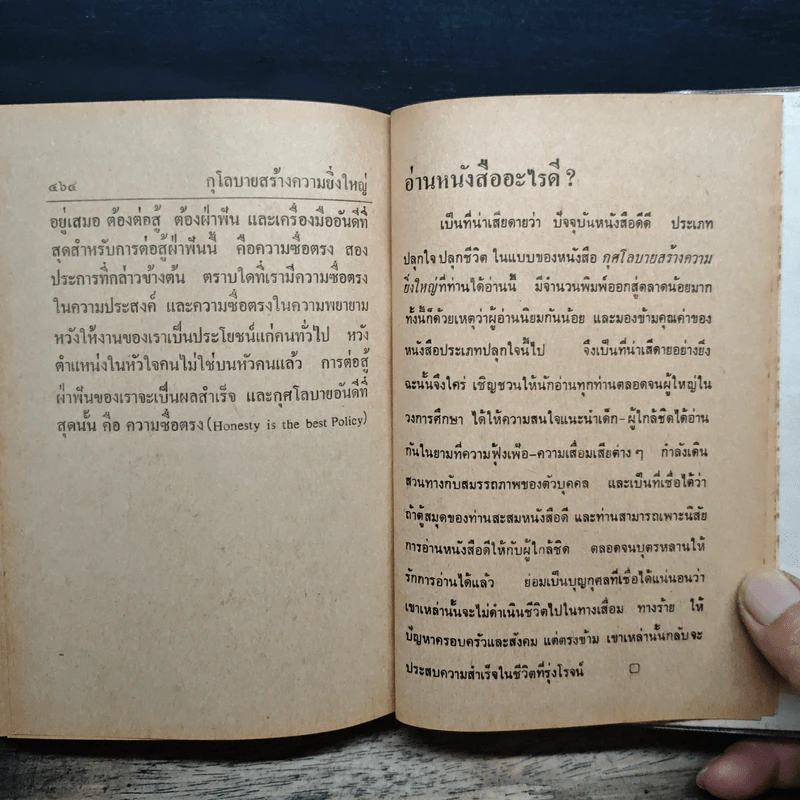 ๔๖๔ กุโลบายสร้างความยิ่งใหญ่
อยู่เสมอ ต้องต่อสู้ ต้องฝ่าฟัน และเครื่องมืออันดีที่
สุดสำหรับการต่อสู้ฝ่าฟันนี้ คือความซื่อตรง สอง
ประการที่กล่าวข้างต้น ตราบใดที่เรามีความซื่อตรง
ในความประสงค์ และความซื่อตรงในความพยายาม
หวังให้งานของเราเป็นประโยชน์แก่คนทั่วไป หวัง
ตำแหน่งในหัวใจคนไม่ใช่บนหัวคนแล้ว การต่อสู้
ฝ่าฟันของเราจะเป็นผลสำเร็จ และกุศโลบายอันดีที่
สุดนั้น คือ ความซื่อตรง (Honesty is the best Policy)
อ่านหนังสืออะไรดี ?
เป็นที่น่าเสียดายว่า ปัจจุบันหนังสือดีดี ประเภท
ปลุกใจ ปลุกชีวิต ในแบบของหนังสือ กุศโลบายสร้างความ
ยิ่งใหญ่ที่ท่านได้อ่านนี้ มีจำนวนพิมพ์ออกสู่ตลาดน้อยมาก
ทั้งนี้ก็ด้วยเหตุว่าผู้อ่านนิยมกันน้อย และมองข้ามคุณค่าของ
หนังสือประเภทปลุกใจนี้ไป จึงเป็นที่น่าเสียดายอย่างยิ่ง
ฉะนั้นจึงใคร่ เชิญชวนให้นักอ่านทุกท่านตลอดจนผู้ใหญ่ใน
วงการศึกษา ได้ให้ความสนใจแนะนำเด็ก-ผู้ใกล้ชิดได้อ่าน
กันในยามที่ความฟุ้งเฟ้อ-ความเสื่อมเสียต่าง ๆ กำลังเดิน
สวนทางกับสมรรถภาพของตัวบุคคล และเป็นที่เชื่อได้ว่า
ถ้าตู้สมุดของท่านสะสมหนังสือดี และท่านสามารถเพาะนิสัย
การอ่านหนังสือดีให้กับผู้ใกล้ชิด ตลอดจนบุตรหลานให้
รักการอ่านได้แล้ว ย่อมเป็นบุญกุศลที่เชื่อได้แน่นอนว่า
เขาเหล่านั้นจะไม่ดำเนินชีวิตไปในทางเสื่อม ทางร้าย ให้
ปัญหาครอบครัวและสังคม แต่ตรงข้าม เขาเหล่านั้นกลับจะ
ประสบความสำเร็จในชีวิตที่รุ่งโรจน์ □